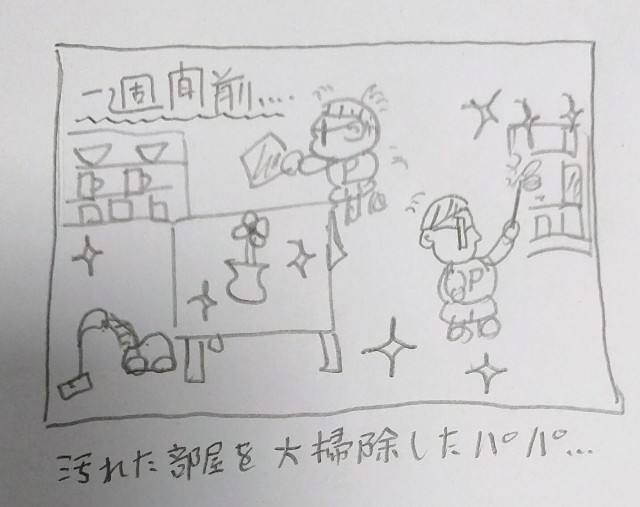 一週間前....
P
P
汚れた部屋を大掃除したパパ...